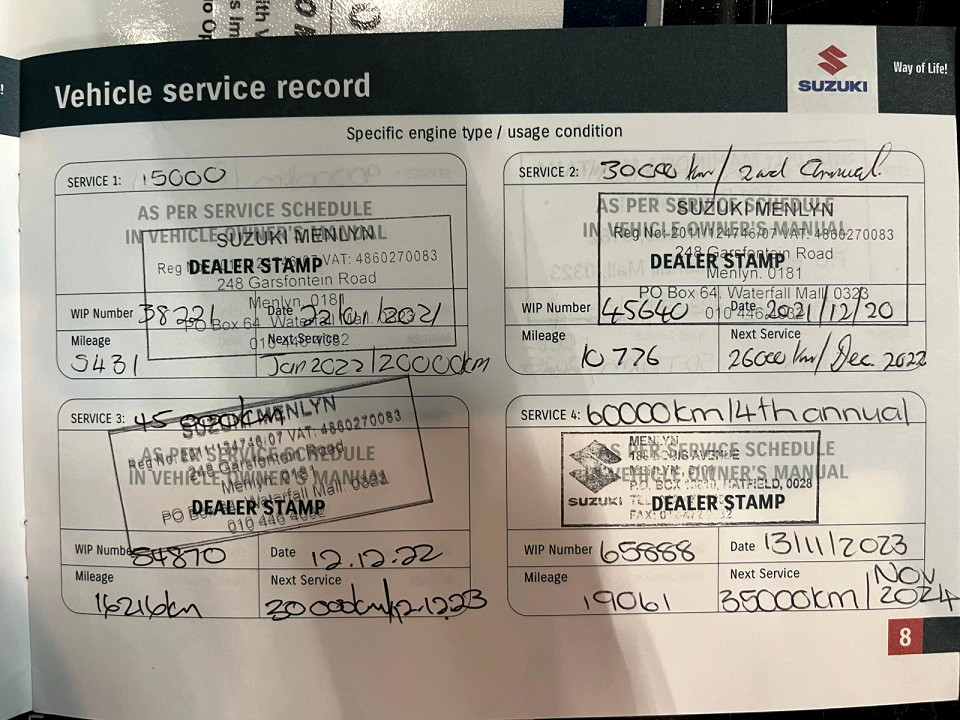 Vehicle service record
SUZUKI
Way of Life!
Specific engine type / usage condition
SERVICE 1: 15000
AS PER SERVICE SCHEDULE
IN VEHICLE OWNER'S MANUAL
SUZUKI MENLYN
VAT: 4860270083
DEALER STAMP
248 Garsfontein Road
Menlyn. 0181
PO Box 64 Waterfall
WIP Number 38221 Date 22/01/2021
Mileage Next Service
5431 Jan 2022/20000km
SERVICE 2: 30000 km/ 2nd Annual.
AS PER SERVICE SCHEDULE
IN VEHICLE OWNER'S MANUAL
SUZUKI MENLYN
Reg No: 2011/124746/07 VAT: 4860270083
248 Garsfontein Road
DEALER STAMP
Menlyn. 0181
PO Box 64. Waterfall Mall. 0323
WIP Number 45640 Date 2021/12/20
Mileage Next Service
10776 26000 km/ Dec. 2022
SERVICE 3: 45 000km
SUZUKI MENLYN
Reg No: 2011/124746/07 VAT: 4860270083
AS PER SERVICE SCHEDULE
248 Garsfontein Road
IN VEHICLE OWNER'S MANUAL
Menlyn 0181
DEALER STAMP
PO Waterfall Mall.
WIP Number 54870 Date 12.12.22
Mileage Next Service
16216km
SERVICE 4: 60000km/4th annual
MENLYN
AS PER SERVICE SCHEDULE
IN VEHICLE OWNER'S MANUAL
P.O. BOX HATFIELD, 0028
SUZUKI
DEALER STAMP
WIP Number 65888 Date 13/11/2023
Mileage Next Service
19061 35000km/ Nov 2024
8